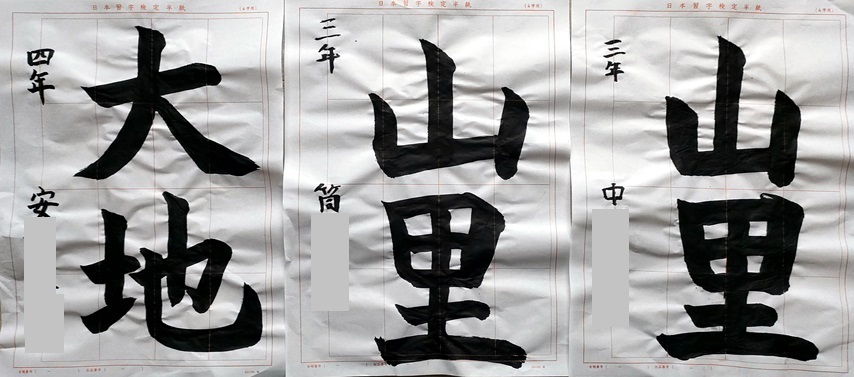 日本習字検定半紙
大地
四年 安
日本習字検定半紙
山里
三年 筒
日本習字検定半紙
山里
三年 中